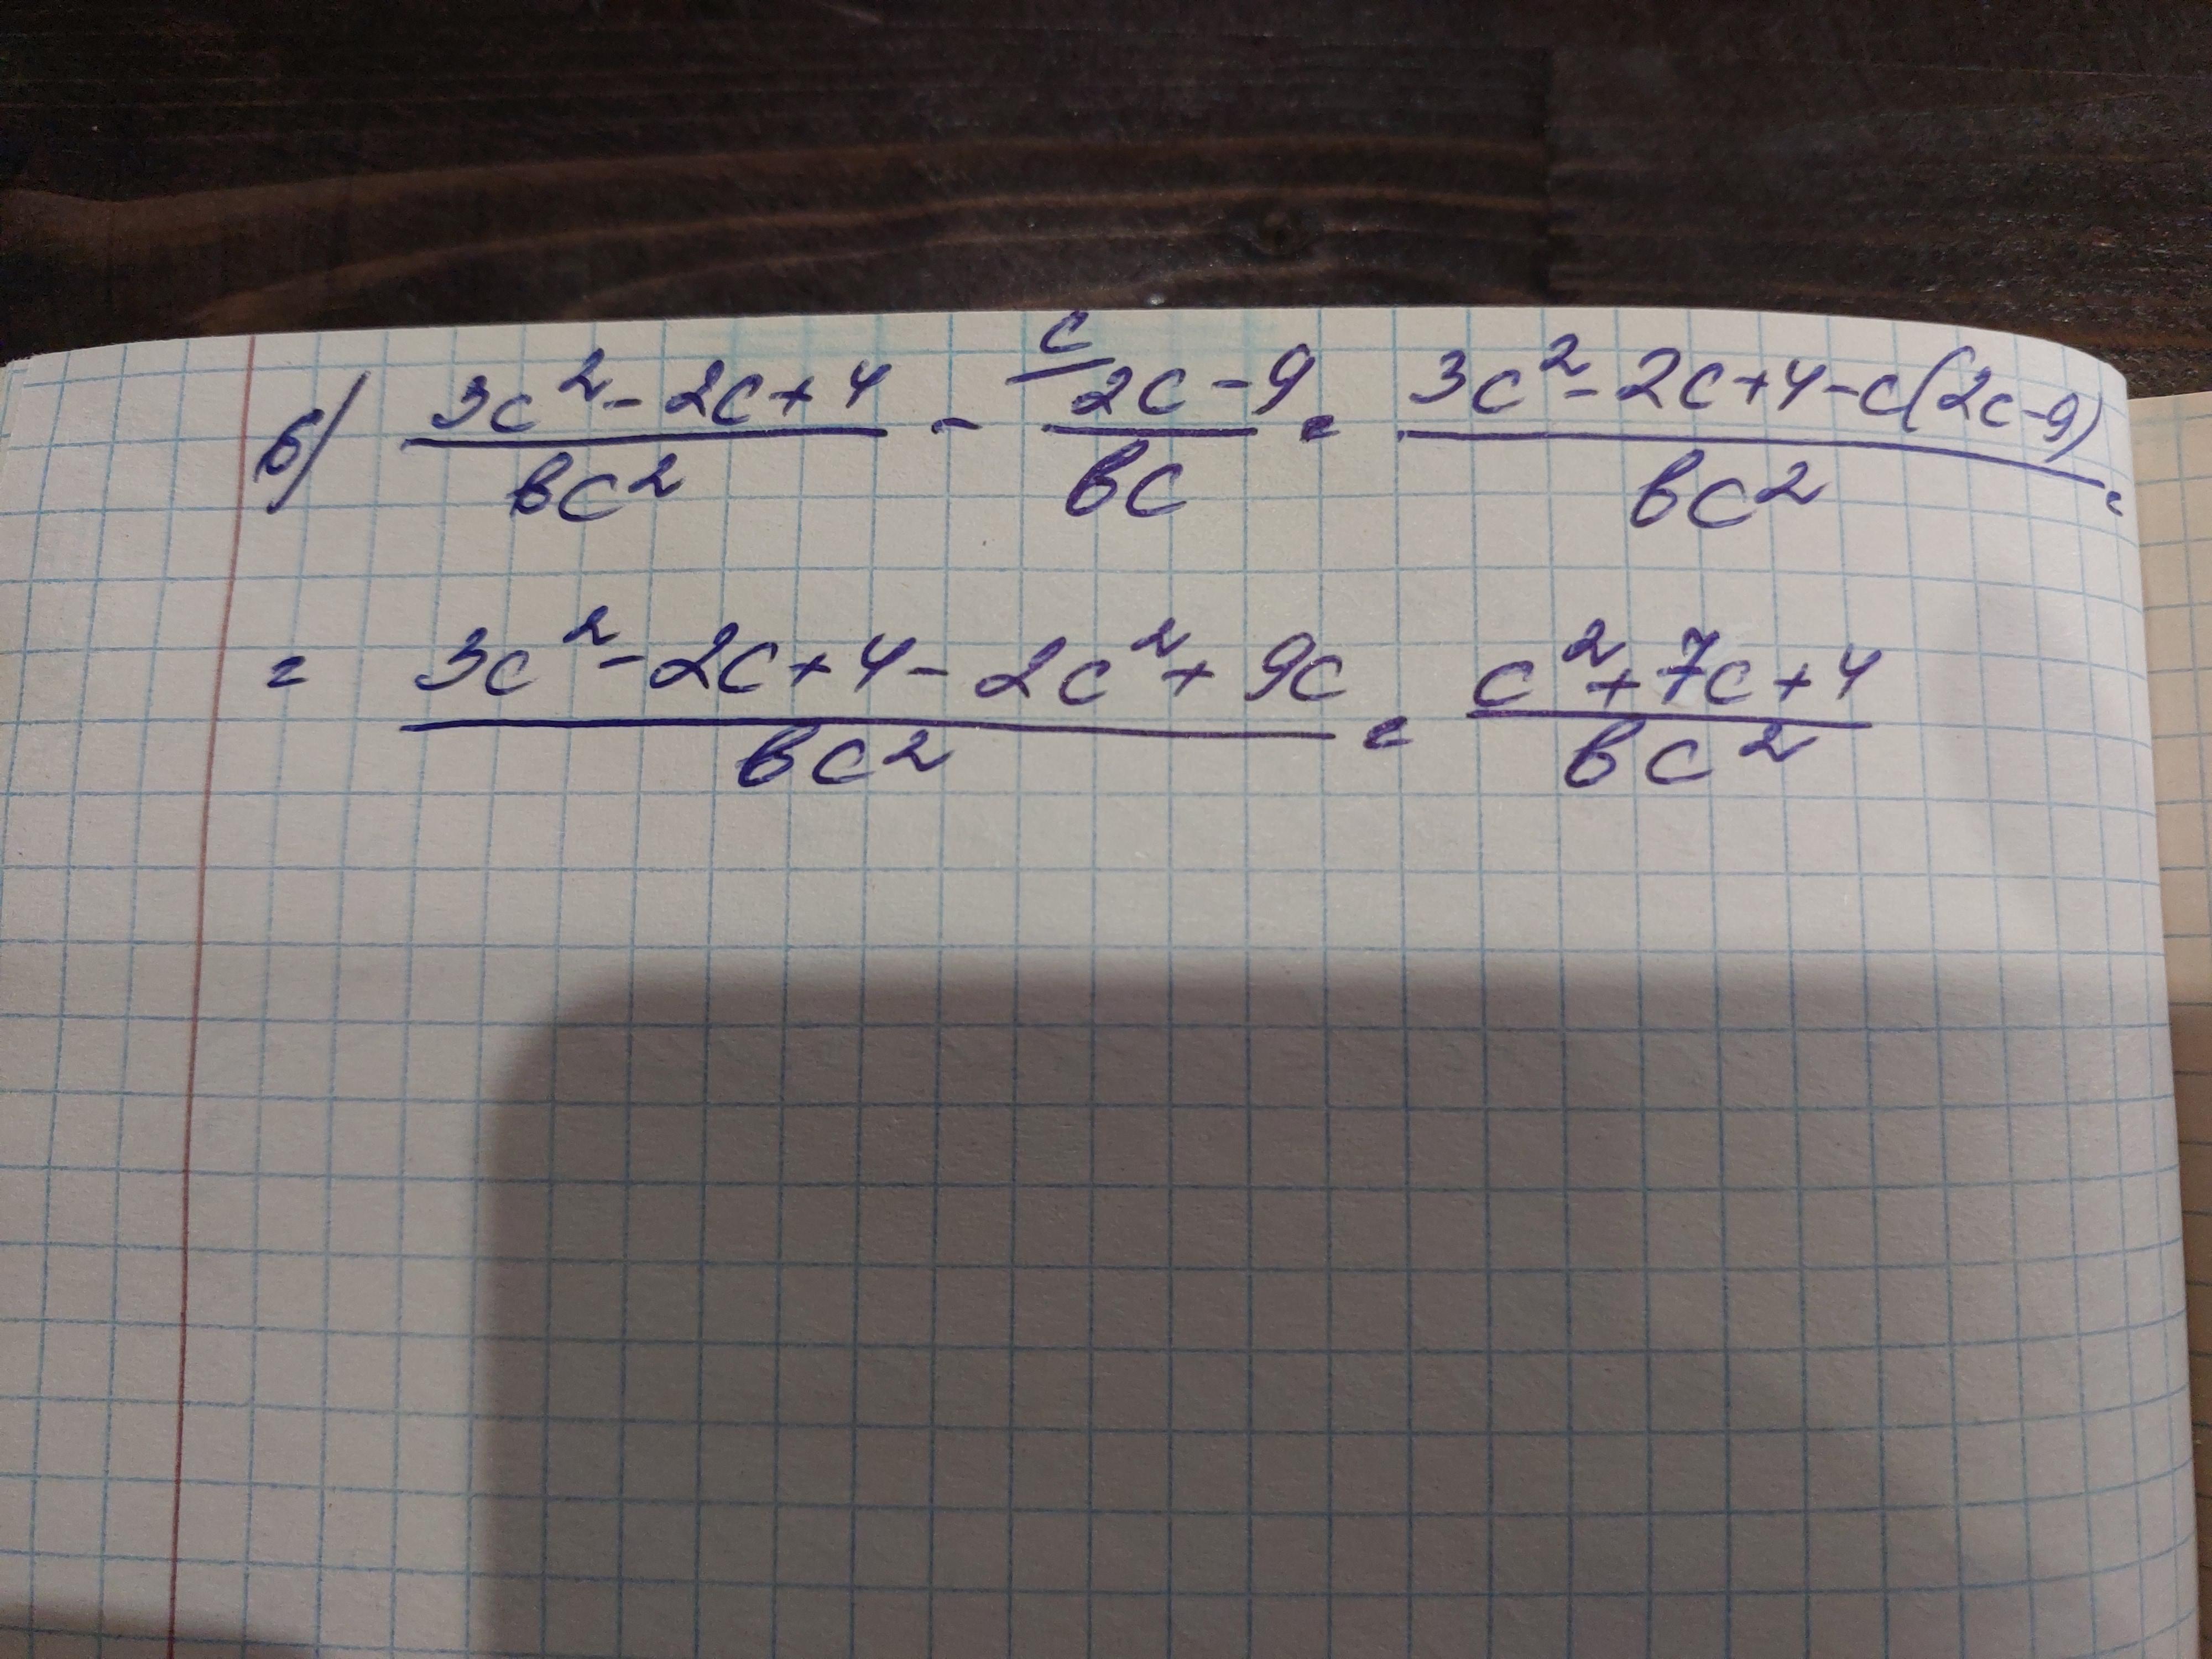 б) (3c² - 2c + 4)/(bc²) - ᶜ/(2c - 9)/(bc) = (3c² - 2c + 4 - c(2c - 9))/(bc²) =
= (3c² - 2c + 4 - 2c² + 9c)/(bc²) = (c² + 7c + 4)/(bc²)